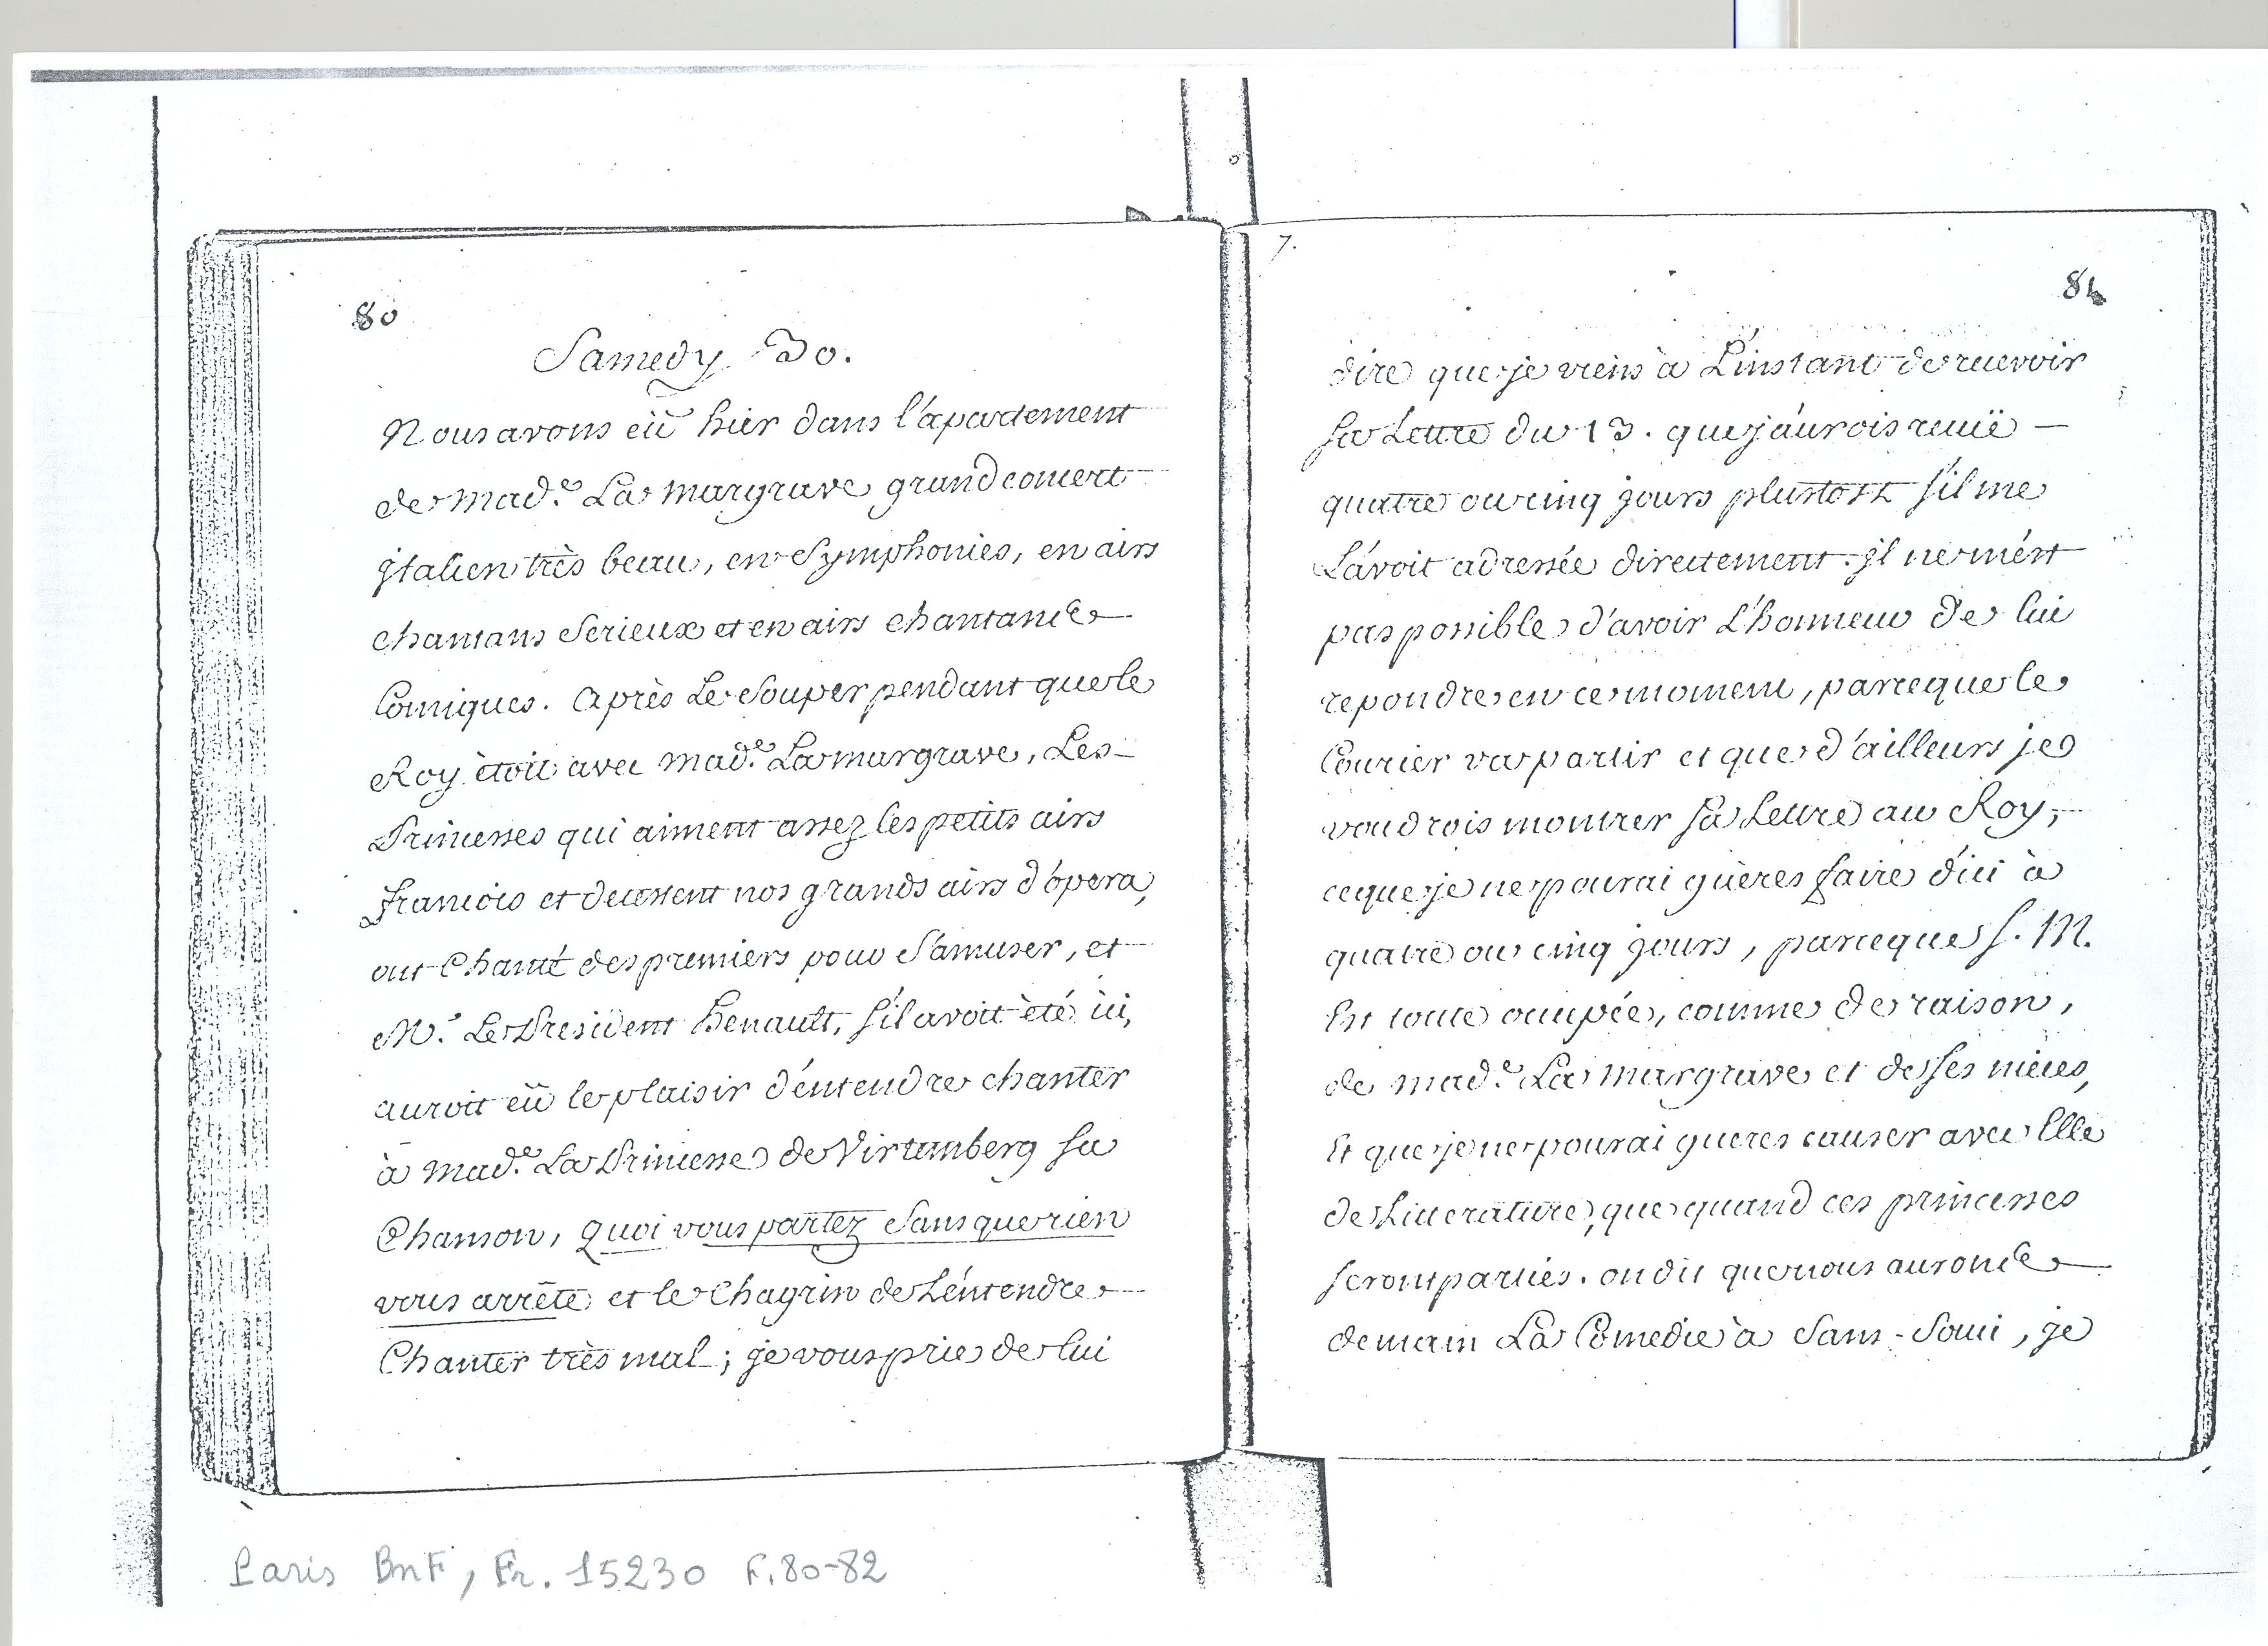 80
Samedy 30.
Nous avons eü hier dans l'apartement
de Mad.e La Margrave grand concert
jtalien très beau, en Symphonies, en airs
chantans Serieux et en airs chantans
Comiques. Après Le Souper pendant que le
Roy ètoit avec Mad.e La Margrave, Les
Princesses qui aiment assez les petits airs
francois et detestent nos grands airs d'opera,
ont Chanté des premiers pour S'amuser, et
M.r Le President Henault, s'il avoit èté ici,
auroit eü le plaisir d'entendre chanter
à Mad.e La Princesse de Virtemberg sa
Chanson, quoi vous partez Sans que rien
vous arrête et le Chagrin de L'entendre
Chanter très mal; je vous prie de lui
7.
81
dire que je viens à L'instant de recevoir
sa Lettre du 13. que j'aurois recuë
quatre ou cinq jours plustost s'il me
L'avoit adressée directement. jl ne m'est
pas possible d'avoir L'honneur de lui
repondre en ce moment, parceque le
Courier va partir et que d'ailleurs je
voudrois montrer sa Lettre au Roy,
ce que je ne pourai guères faire d'ici à
quatre ou cinq jours, parceque S. M.
Est toute occupée, comme de raison,
de Mad.e La Margrave et de ses nieces,
Et que je ne pourai gueres causer avec Elle
de Litterature, que quand ces princesses
seront parties. on dit que nous aurons
demain La Comedie à Sans-Souci, je
Paris BnF, Fr. 15230 F. 80-82